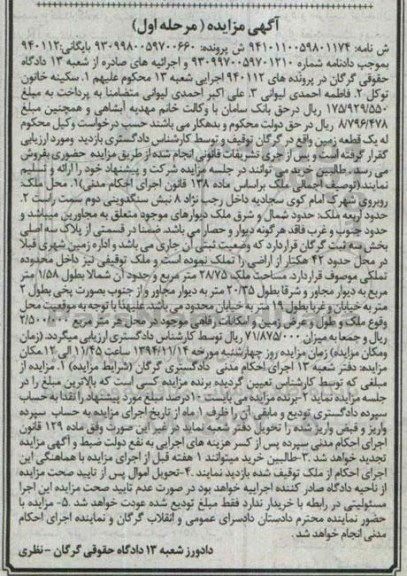 آگهی مزایده ( مرحله اول)
ش نامه: ۹۴۱۰۱۱۰۰۵۹۸۰۱۱۷۴ ش پرونده: ۹۳۰۹۹۸۰۰۵۹۷۰۰۶۶۰ بایگانی:۹۴۰۱۱۲
بموجب دادنامه شماره ۹۳۰۹۹۷۰۰۵۹۷۰۱۲۱۰ و اجرائیه های صادره از شعبه ۱۳ دادگاه
حقوقی گرگان در پرونده های ۹۴۰۱۱۲ اجرایی شعبه ۱۳ محکوم علیهم ۱. سکینه خاتون
توکل ۲. فاطمه احمدی لیوانی ۳. علی اکبر احمدی لیوانی متضامنا به پرداخت به مبلغ
۱۷۵/۹۲۹/۵۵۰ ریال درحق بانک سامان با وکالت خانم مهدیه آبشاهی و همچنین مبلغ
۸/۷۹۶/۴۷۸ ریال در حق دولت محکوم و بدهکار می باشند حسب درخواست وکیل محکوم
له یک قطعه زمین واقع در گرگان توقیف و توسط کارشناس دادگستری بازدید ومورد ارزیابی
قرار گرفته است و پس از جری تشریفات قانونی انجام شده از طریق مزایده حضوری بفروش
می رسد. طالبین خرید می توانند در جلسه مزایده شرکت و پیشنهاد خود را ارائه و تسلیم
نمایند(توصیف اجمالی ملک براساس ماده ۱۳۸ قانون اجرای احکام مدنی)۱. محل ملک:
روبروی شهرک امام کوی سجادیه داخل رجب نژاد ۸ نبش سنگدوینی دوم سمت راست ۲.
حدود اربعه ملک: حدود شمال و شرق ملک دیوارهای موجود متعلق به مجاورین میباشد و
حدود جنوب و غرب فاقد هرگونه دیوار و حصار می باشد ضمنا در قسمتی از پلاک سه اصلی
بخش سه ثبت گرگان قراردارد که وضعیت ثبتی آن جاری می باشد و اداره زمین شهری قبلا
در محل حدود ۴۲ هکتار از اراضی را تملک نموده است و ملک توقیفی نیز داخل محدوده
تملکی موصوف قراردارد. مساحت ملک ۲۸/۷۵ متر مربع وحدود آن شمالا بطول ۱/۵۸ متر
مربع به دیوار مجاور و شرقا بطول ۲۰/۳۵ متر به دیوار مجاور و از جنوب بصورت پخی بطول ۲
متر به خیابان و غربا بطول ۱۹ متر به خیابان محدود می باشد علیهذا با توجه به موقعیت محل
وقوع ملک و طول و عرض زمین و امکانات رفاهی موجود در محل هر متر مربع
ریال و جمعا به میزان ۷۱/۸۷۵/۰۰۰ ریال توسط کارشناس دادگستری ارزیابی میگردد. (زمان
ومکان مزایده) زمان مزایده روز چهارشنبه مورخه ۱۳۹۴/۱۱/۱۴ ساعت ۱۱/۴۵ الی ۱۲ مکان
مزایده: دفتر شعبه ۱۳ اجرای احکام مدنی دادگستری گرگان (شرایط مزایده) ۱. مزایده از
مبلغی که توسط کارشناس تعیین گردیده برنده مزایده کسی است که بالاترین مبلغ را در
جلسه مزایده نماید ۲-برنده مزایده می بایست ۱۰درصد مبلغ مورد پیشنهاد را نقدا به حساب
سپرده دادگستری تودیع و مابقی آن را ظرف ۱ ماه از تاریخ اجرای مزایده به حساب سپرده
واریز و قبض واریز شده را تحویل دفتر شعبه نماید در غیر این صورت وفق ماده ۱۲۹ قانون
اجرای احکام مدنی سپرده پس از کسر هزینه های اجرایی به نفع دولت ضبط و آگهی مزایده
تجدید خواهد شد .۳-طالبین خرید میتوانند ۱ هفته قبل از اجرای مزایده با هماهنگی این
اجرای احکام از ملک توقیف شده بازدید نمایند .۴-تحویل اموال پس از تایید صحت مزایده
از ناحیه دادگاه صادر کننده اجراییه خواهد بود در صورت عدم تایید صحت مزایده این اجرا
مسئولیتی در رابطه با خریدار ندارد فقط مبلغ تودیع شده عودت خواهد شد .۵- مزایده با
حضور نماینده محترم دادستان دادسرای عمومی و انقلاب گرگان و نماینده اجرای احکام
مدنی انجام خواهد شد .
دادورز شعبه ۱۳ دادگاه حقوقی گرگان - نظری